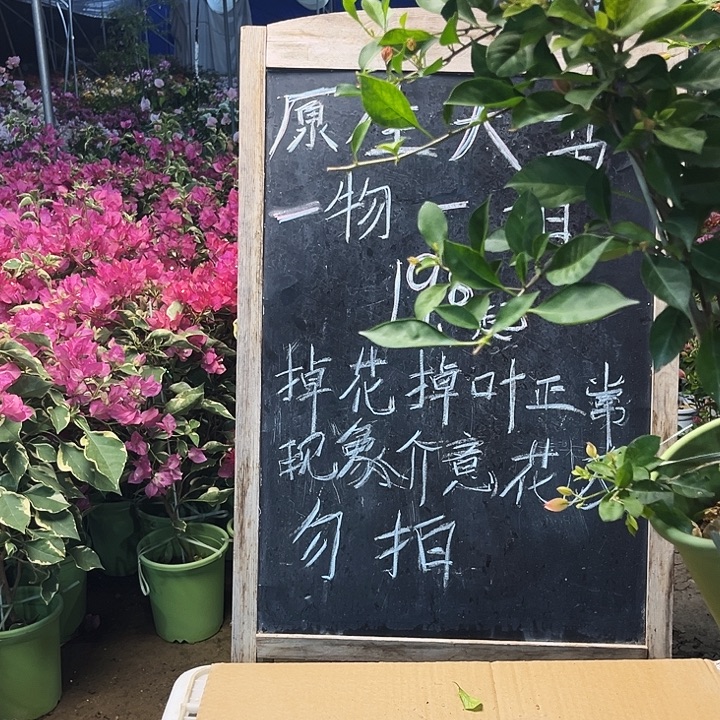 原生大
一物一
19.9起
掉花掉叶正常
现象介意花
勿拍